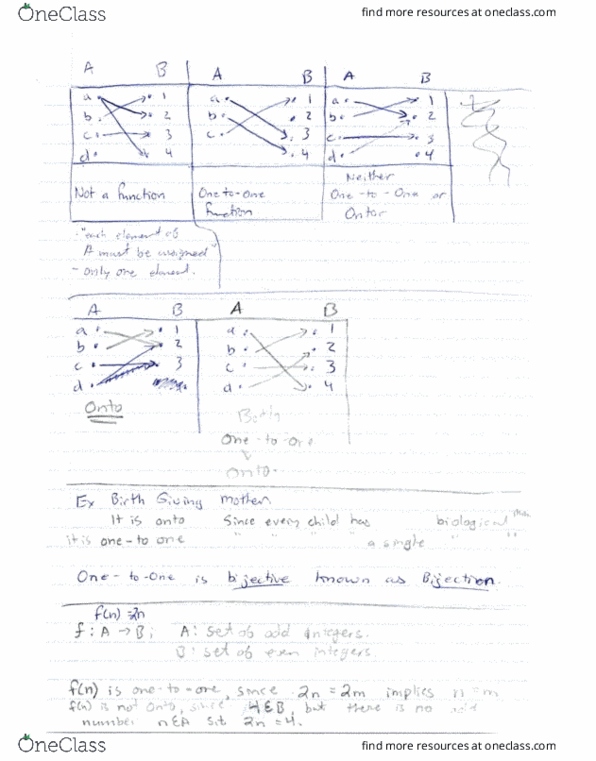 OneClass
find more resources at oneclass.com
A B A B A B
a 1 a 1 a 1
b 2 b 2 b 2
c 3 c 3 c 3
d 4 4 d 4
Not a function
One-to-one
function
Neither
One-to-One or
Onto
"each element of
A must be assigned"
- only one element.
A B A B
a 1 a 1
b 2 b 2
c 3 c 3
d d 4
Onto
Both
One-to-one
onto
Ex Birth Giving mother
It is onto Since every child has biological
it is one-to one " " " a single " "
One-to-One is bijective known as Bijection.
f(n)=2n
f: A → B; A: set of odd integers.
B: set of even integers.
f(n) is one-to-one, since 2n=2m implies n=m
f(n) is not onto, since 4∈B, but there is no odd
number n∈A s.t. 2n=4.
OneClass
find more resources at oneclass.com